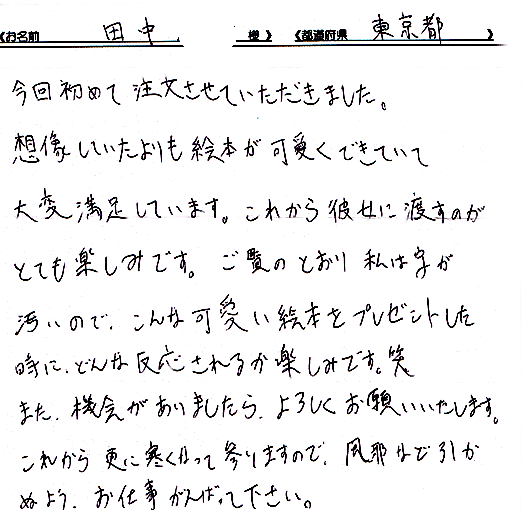 《お名前 田中 様》 《都道府県 東京都 》
今回初めて注文させていただきました。
想像していたよりも絵本が可愛くできていて
大変満足しています。これから彼女に渡すのが
とても楽しみです。ご覧のとおり私は字が
汚いので、こんな可愛い絵本をプレゼントした
時に、どんな反応されるか楽しみです。笑
また、機会がありましたら、よろしくお願いいたします。
これから更に寒くなって参りますので、風邪など引か
ぬよう、お仕事がんばって下さい。